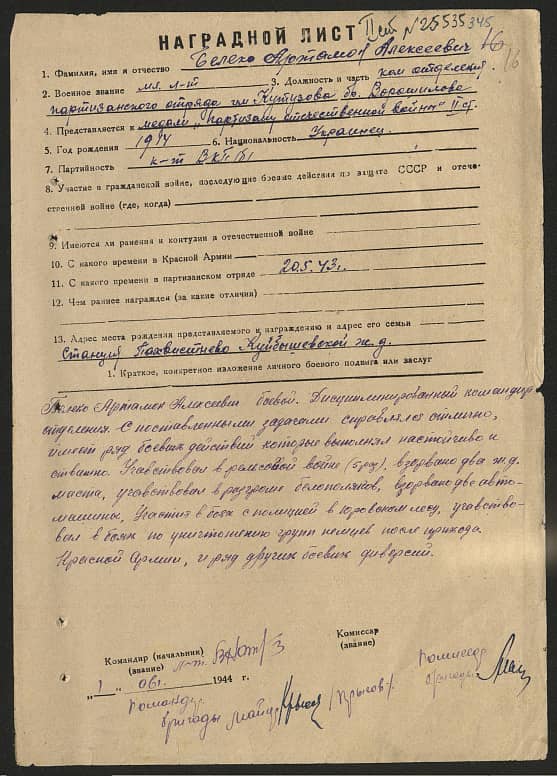 II ст N 25535345
16
16
НАГРАДНОЙ ЛИСТ
1. Фамилия, имя и отчество Белеко Артамон Алексеевич
2. Военное звание мл. л-т 3. Должность и часть ком. отделения
партизанского отряда им. Кутузова бр. Ворошилова
4. Представляется к медали „Партизану отечественной войны" II ст.
5. Год рождения 1914 6. Национальность Украинец
7. Партийность к-т ВКП(б)
8. Участие в гражданской войне, последующие боевые действия по защите СССР и отече-
ственной войне (где, когда)
9. Имеются ли ранения и контузии в отечественной войне
10. С какого времени в Красной Армии
11. С какого времени в партизанском отряде 20.5.43 г.
12. Чем раннее награжден (за какие отличия)
13. Адрес места рождения представляемого к награждению и адрес его семьи
Станция Похвистнево Куйбышевской ж.д.
1. Краткое, конкретное изложение личного боевого подвига или заслуг
Белеко Артамон Алексеевич боевой. Дисциплинированный командир
отделения. С поставленными задачами справлялся отлично,
имеет ряд боевых действий которые выполнял настойчиво и
отважно. Участвовал в рельсовой войне (5 раз), взорвано два ж.д.
моста, участвовал в разгроме белополяков, взорвано две авто-
машины, Участие в боях с полицией в лесу, участво-
вал в боях по уничтожению групп немцев после прихода
Красной Армии, и ряд других боевых диверсий.
Командир (начальник)
(звание) л-т
Комиссар
(звание)
„1" 1944 г.
Командир
бригады майор
Комиссар
бригады